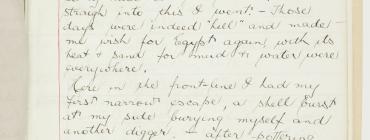 straight into this I went. - Those
days were indeed "hell" and made
me wish for Egypt again with its
heat & sand for mud & water were
everywhere.
Here in the front-line I had my
first narrow escape, a shell burst
at my side burying myself and
another digger. - after pottering